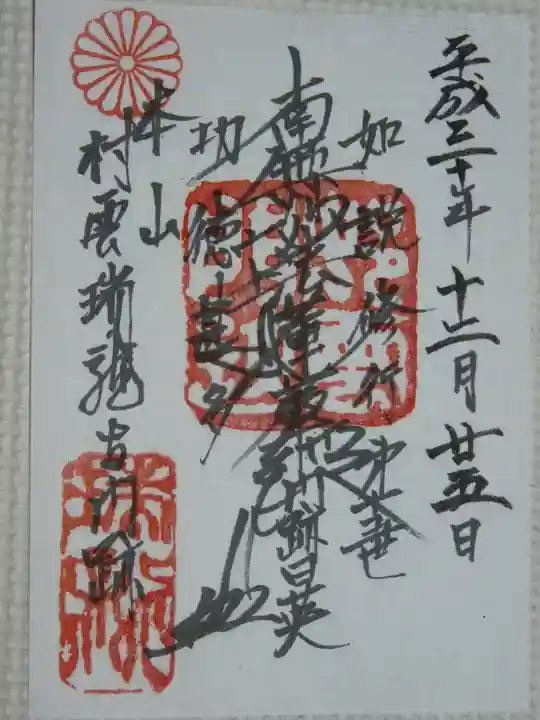 平成三十年十二月廿五日
如説修行
南無妙法蓮華経
跡日英
功徳甚多
本山
村雲瑞龍寺門跡